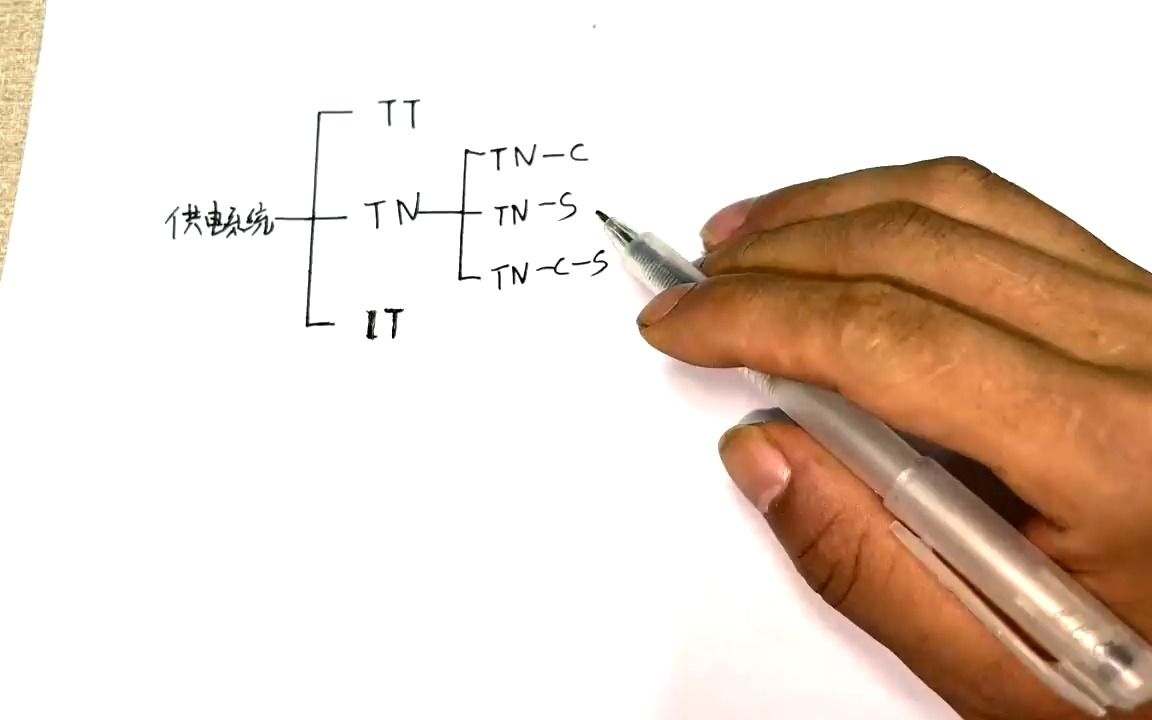 TT
TN-C
供电系统 TN TN-S
TN-C-S
IT